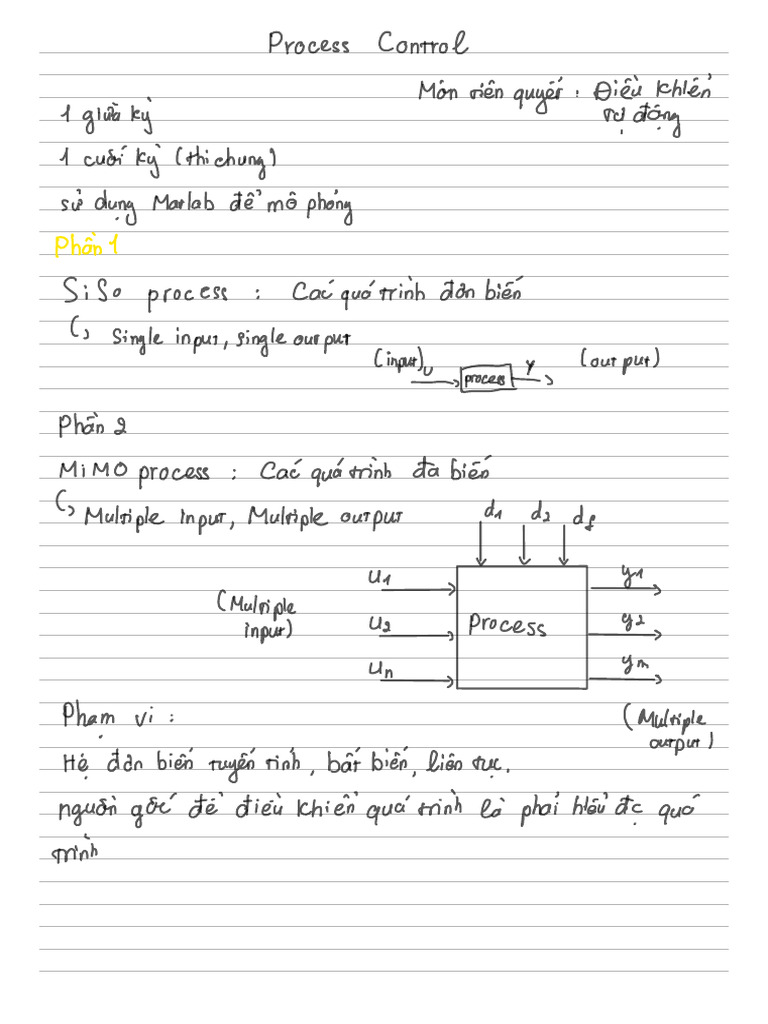 Process Control
Môn tiên quyết : Điều khiển
tự động
1 giữa kỳ
1 cuối kỳ (thi chung)
sử dụng Matlab để mô phỏng
Phần 1
SiSo process : Các quá trình đơn biến
Single input, single output
(input) U process Y (output)
Phần 2
MiMO process : Các quá trình đa biến
Multiple input, Multiple output
d1 d2 df
u1 y1
(Multiple
input) u2 Process y2
un ym
Phạm vi :
(Multiple
output)
Hệ đơn biến tuyến tính, bất biến, liên tục.
nguồn gốc để điều khiển quá trình là phải hiểu đc quá
trình